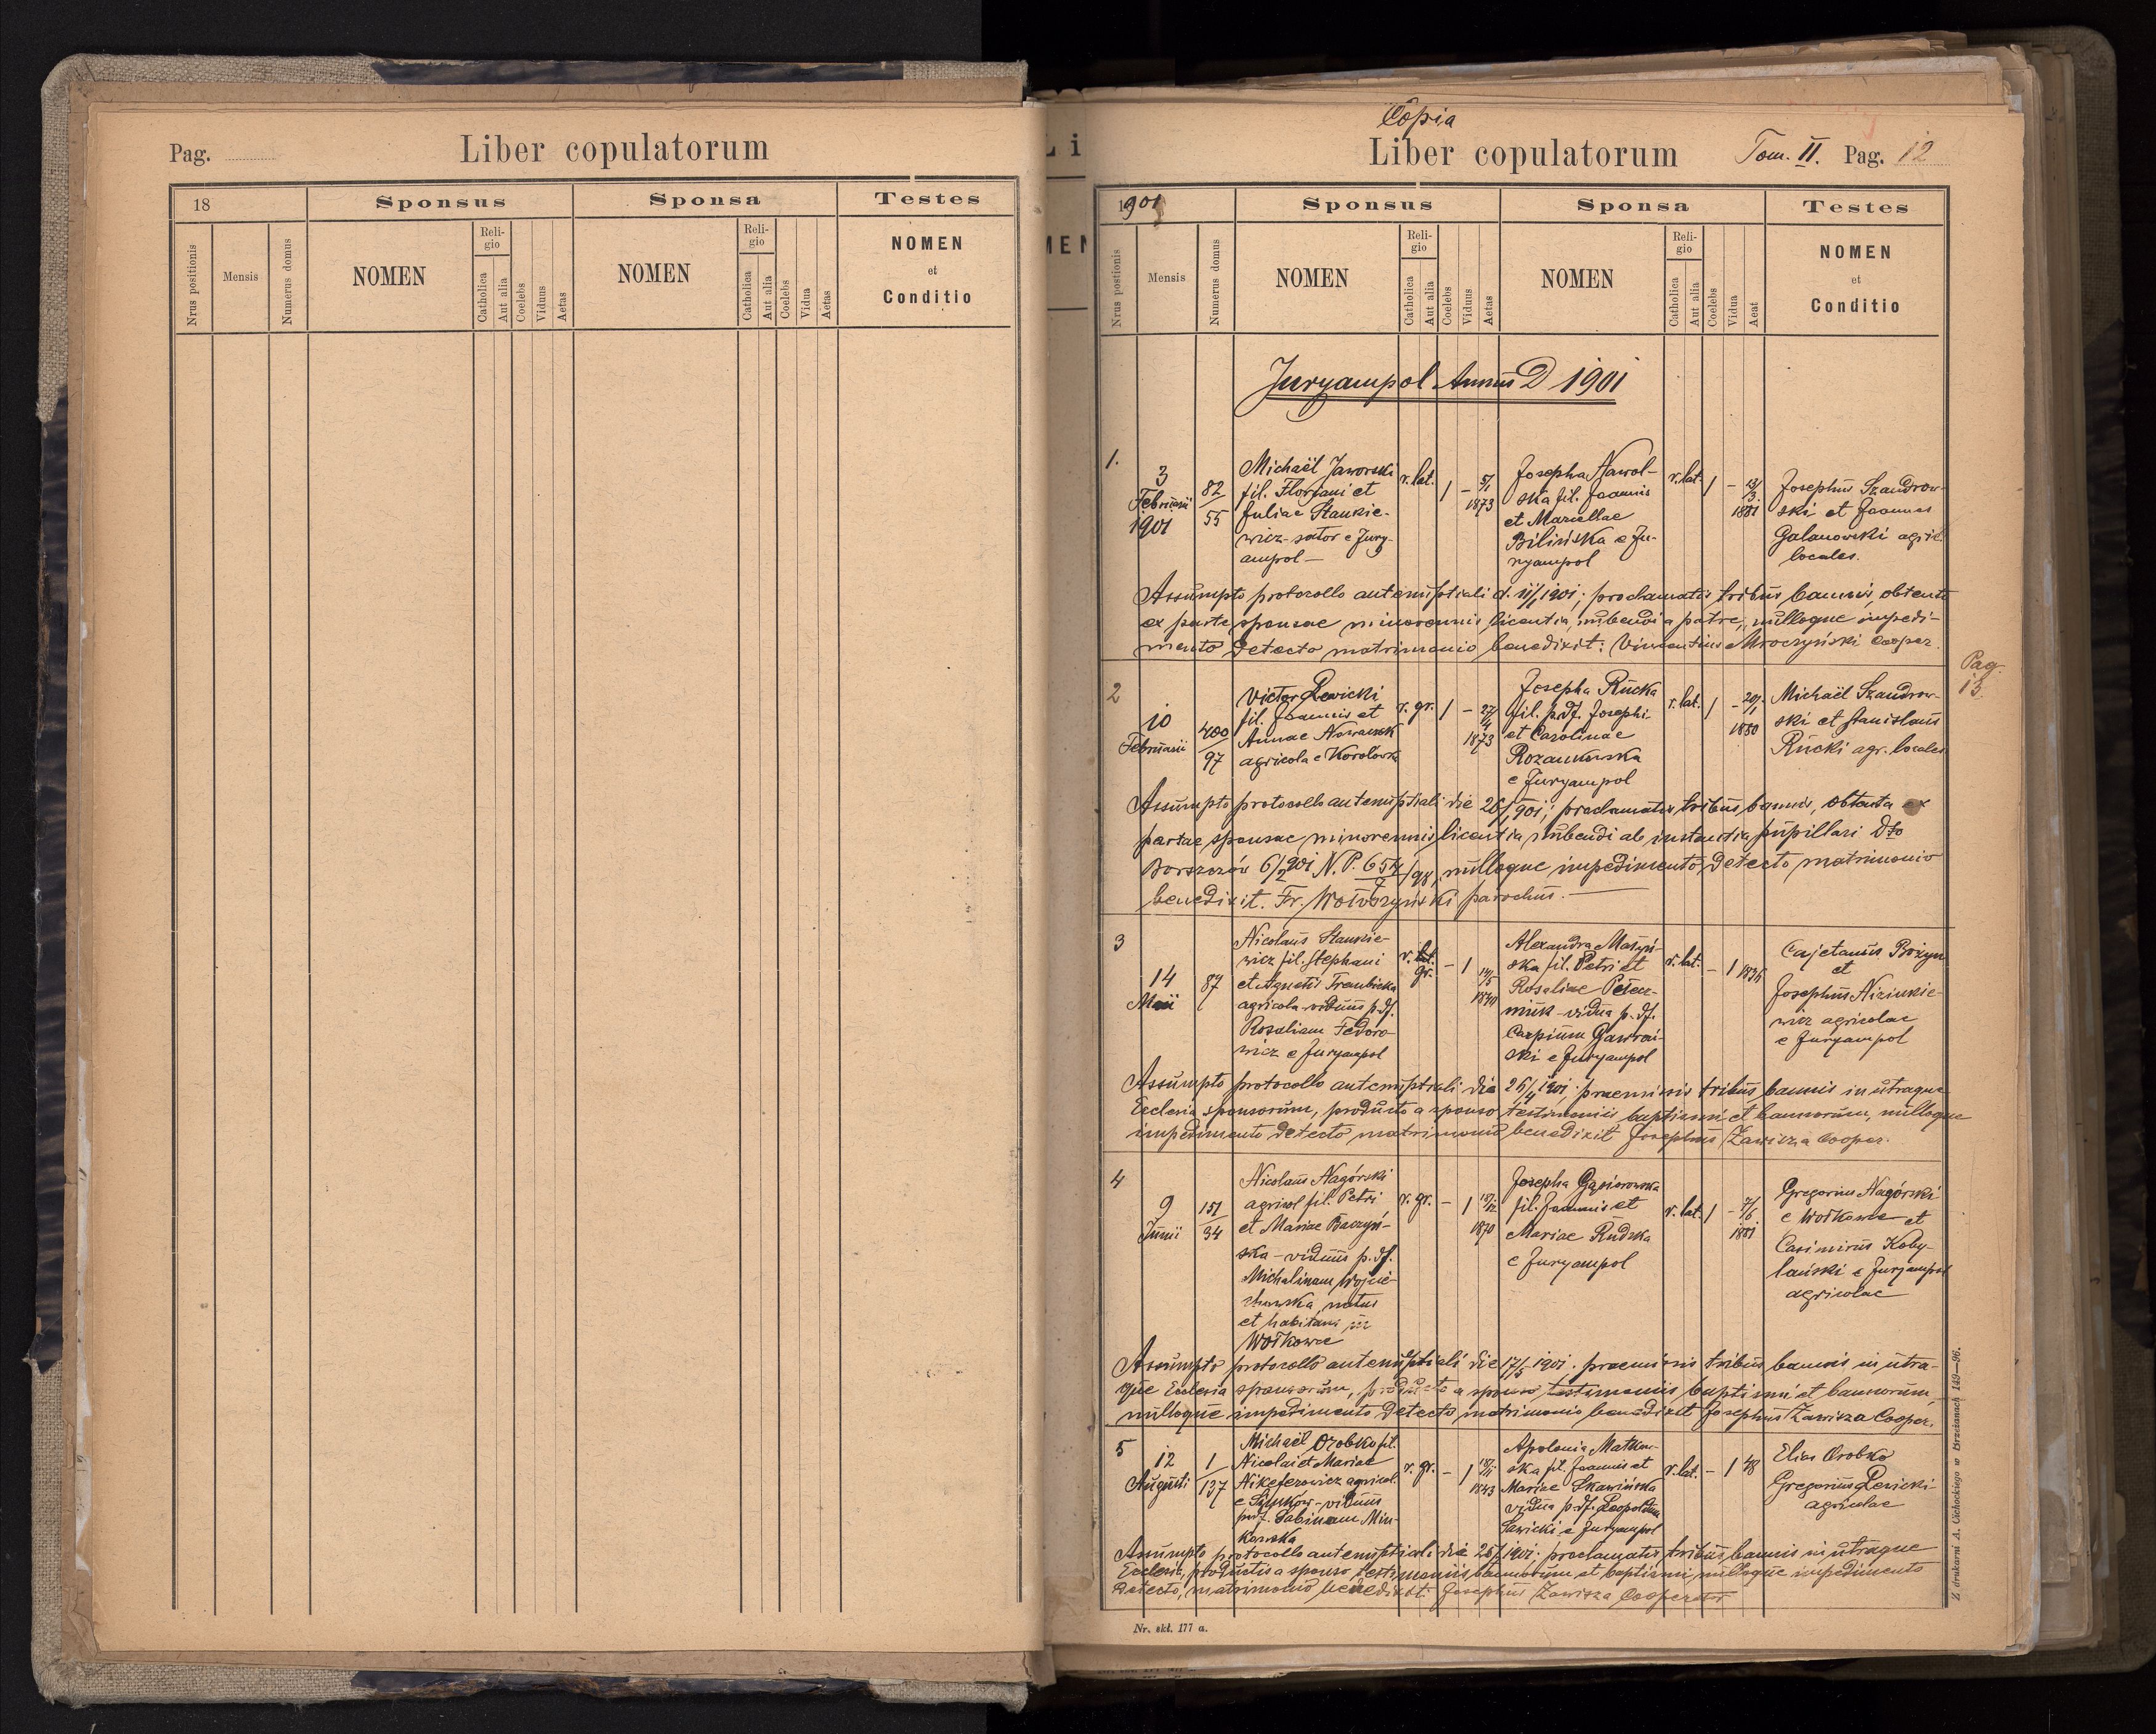 Pag.
Liber copulatorum
18
Sponsus
Sponsa
Testes
Nrus positionis
Mensis
Numerus domus
NOMEN
Religio
Catholica
Aut alia
Coelebs
Viduus
Aetas
NOMEN
Religio
Catholica
Aut alia
Coelebs
Vidua
Aetas
NOMEN
et
Conditio
Copia
Liber copulatorum
Tom. II. Pag. 12
1901
Sponsus
Sponsa
Testes
Nrus postionis
Mensis
Numerus domus
NOMEN
Reli-
gio
Catholica
Aut alia
Coelebs
Viduus
Aetas
NOMEN
Reli-
gio
Catholica
Aut alia
Coelebs
Vidua
Aeat
NOMEN
et
Conditio
Juryampol Annus D 1901
1.
3
Februarii
1901
82
55
Michaël Jaworski
fil. Floriani et
Juliae Stankie-
wicz - sutor e Jury-
ampol -
r. lat.
1 -
5/1
1873
Josepha Nawol-
ska fil. Joannis
et Marcellae
Bilińska e Ju-
ryampol
r. lat.
1 -
13/3
1881
Josephus Szandrow-
ski et Joannes
Galanowski agric.
locales.
Assumpto protocollo antenuptiali d. 11/1 1901; proclamatis tribus bannis, obtenta
ex parte sponsae minorennis licentia nubendi a patre, nulloque impedi-
mento detecto matrimonio benedixit: Vincentius Mroczyński Cooper.
2
10
Februarii
400
97
Victor Lewicki
fil. Joannis et
Annae Nowacsek
agricola e Korolówka
r. gr.
1 -
27/4
1873
Josepha Rucka
fil. p. df. Josephi
et Carolinae
Rozankowska
e Juryampol
r. lat.
1 -
20/1
1880
Michaël Szandrow-
ski et Stanislaus
Rucki agr. locales
Pag.
13.
Assumpto protocollo antenuptiali die 26/1 901; proclamatis tribus bannis, obtenta ex
partae sponsae minorennis licentia nubendi ab instantia pupillari Dto
Borszczów 6/2 901 N. P. 654/7/98, nulloque impedimento detecto matrimonio
benedixit. Fr. Wołoszyński parochus.
3
14
Maii
87
Nicolaus Stankie-
wicz fil. Stephani
et Agnetis Trembicka
agricola - viduus p. df.
Rosaliam Fedoro-
wicz e Juryampol
r. lat.
gr.
- 1
19/5
1840
Alexandra Maszyń-
ska fil. Petri et
Rosaliae Peten-
miuk - vidua p. df.
Carpium Gawroń-
ski e Juryampol
r. lat.
- 1 1836
Cajetanus Bożyn
et
Josephus Nizinkie-
wicz agricolae
e Juryampol
Assumpto protocollo antenuptiali die 26/4 1901; praemissis tribus bannis in utraque
Ecclesia sponsorum, producto a sponso testimoniis baptismi et bannorum, nulloque
impedimento detecto matrimonio benedixit Josephus Zawisza Cooper.
4
9
Junii
151
34
Nicolaus Nagórski
agricol fil. Petri
et Mariae Baczyń-
ska - viduus p. df.
Michalinam Wojcie-
chowska, natus
et habitans in
Wołkowce
r. gr.
- 1
18/12
1870
Josepha Gąsiorowska
fil. Joannis et
Mariae Rudzka
e Juryampol
r. lat.
1 -
7/6
1881
Gregorius Nagórski
e Wołkowce et
Casimirus Koby-
lański e Juryampol
agricolae
Assumpto protocollo antenuptiali die 17/5 1901. praemissis tribus bannis in utra-
que Ecclesia sponsorum, producto a sponso testimoniis baptismi et bannorum,
nulloque impedimento detecto matrimonio benedixit Josephus Zawisza Cooper.
5
12
Augusti
1
137
Michaël Orobko fil.
Nicolai et Mariae
Nikeferowicz agricol.
e Synków - viduus
p. df. Sabinam Min-
kowska
r. gr.
- 1
18/11
1843
Apolonia Matkow-
ska fil. Joannis et
Mariae Skawińska
vidua p. df. Leopoldum
Sawicki e Juryampol
r. lat.
- 1 48
Elias Orobko
Gregorius Lewicki
agricolae
Assumpto protocollo antenuptiali die 26/7 1901; proclamatis tribus bannis in utraque
Ecclesia, productis a sponso testimoniis bannorum et baptismi, nulloque impedimento
detecto, matrimonio benedixit. Josephus Zawisza Cooperator
Nr. skł. 177 a.
Z drukarni A. Cichockiego w Brzeżanach 149—96.